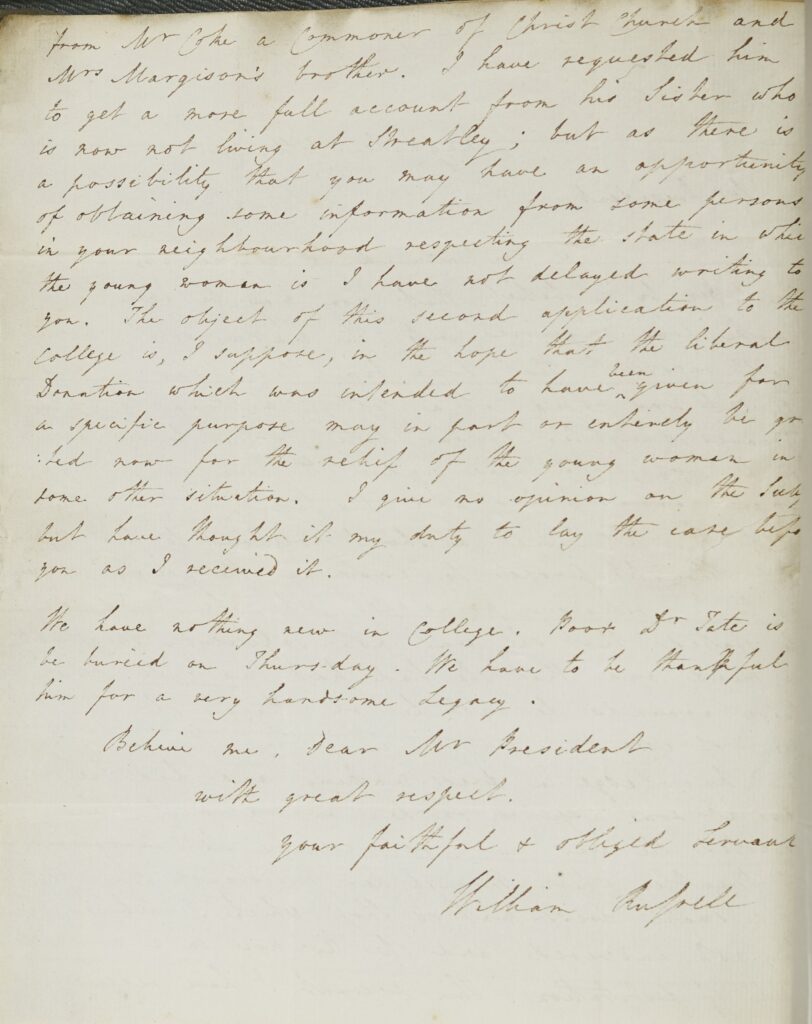 from Mr Coke a Commoner of Christ Church and
Mrs Margison's brother. I have requested him
to get a more full account from his Sister who
is now not living at Streatley; but as there is
a possibility that you may have an opportunity
of obtaining some information from some persons
in your neighbourhood respecting the state in whic
the young woman is I have not delayed writing to
you. The object of this second application to the
College is, I suppose, in the hope that the liberal
Donation which was intended to have been given for
a specific purpose may in part or entirely be gr
:ted now for the relief of the young woman in
some other situation. I give no opinion on the Subj
but have thought it my duty to lay the case befo
you as I received it.
We have nothing new in College. Poor Dr Tate is
be buried on Thursday. We have to be thankful
him for a very handsome Legacy.
Believe me, Dear Mr President
with great respect.
your faithful & obliged Servant
William Russell